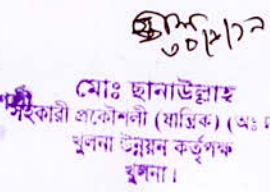 মোঃ ছানাউল্লাহ
সহকারী প্রকৌশলী (যান্ত্রিক) (অঃ
খুলনা উন্নয়ন কর্তৃপক্ষ
খুলনা।